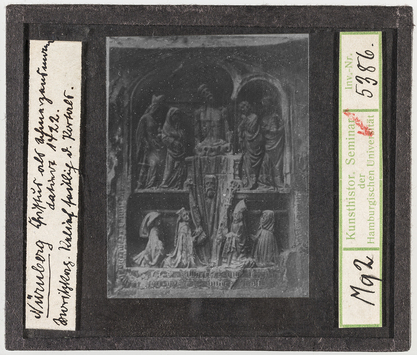 Nürnberg Christus als Schmerzensmann
datiert 1422.
Moritzkap. Relief südlich d. Portals.
Kunsthistor. Seminar
der
Hamburgischen Universität
Inv.-Nr.
5386.
Mg2